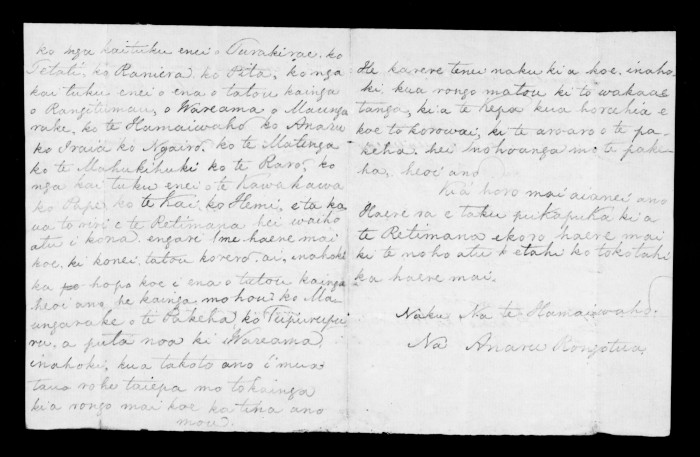 ko nga kaituku enei o Turakirae. ko
Tetati, ko Raniera ko Pita, ko nga
kai tuku enei o ena o tatou kainga
o Rangitumau, o Wareama o Maunga
rake, ko te Hamaiwaho ko Anaru
ko Iraia ko Ngairo, ko te Matenga
ko te Mahukihuki ko te Raro, ko
nga kai tuku enei o te Kawakawa
ko Pape, ko te Kai, ko Hemi, e ta ka
ua to riri e te Retimana hei waiho
atu i kona, engari me haere mai
koe, ki konei, tatou korero, ai, inahoki
ka hopo koe i ena o tatou kainga
heoi ano he kainga mo hou ko Ma
ungarake o te Pakeha, ko Tupurupu
ru, a puta noa ki Wareama,
inahoki, kua takoto ano i mua
taua rohe taiepa mo tokainga
kia rongo mai koe ka tina ano
mou.
He karere tenei naku ki a koe, inaho
ki kua rongo matou ki to wakaae
tanga, ki a te Kepa kua horahia e
koe to korowai, ki te aroaro o te pa-
keha, hei nohoanga mo te pake
ha, heoi ano
Kia horo mai aianei ano
Haere ra e taku pukapuka ki a
te Retimana e horo haere mai
ki te noho atu etahi ko tokotahi
ka haere mai.
Naku Na te Hamaiwaho.
Na Anaru Rongotua.